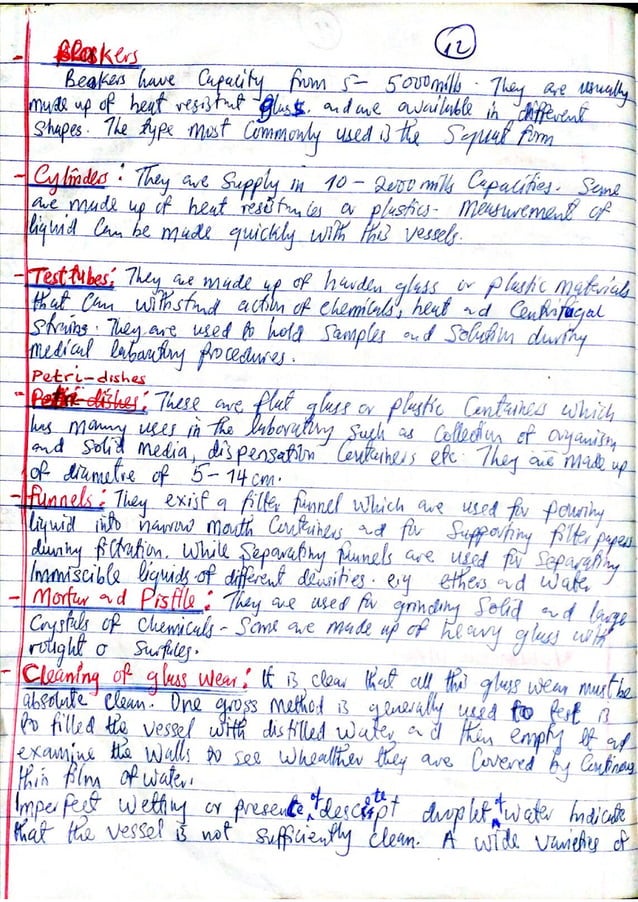 12
- Beakers
Beakers have Capacity from 5 - 5000mills. They are usually
made up of heat resistant glass. and are available in different
shapes. The type most Commonly used is the Squat form
- Cylinders: They are Supply in 10 - 2000mills Capacities. Some
are made up of heat resistances or plastics. Measurement of
liquid Can be made quickly with this vessels.
- Test tubes: They are made up of harden glass or plastic materials
that Can withstand action of chemicals, heat ad Centrifugal
Strains. They are used to hold Samples and Solution during
medical laboratory procedures.
Petri-dishes
- Petri-dishes: These are flat glass or plastic Containers which
has manny uses in the laboratory Such as Collection of organism
and Solid media, dispensation Containers etc. They are made up
of diametre of 5 - 14cm.
- Funnels: They exist a filter funnel which are used for pouring
liquid into narrow mouth Containers ad for Supporting filter papers
during filtration. While Separating funnels are used for Separating
Immiscible liquids of different densities. e.g ethers ad water
- Mortar and Pistile: They are used for grinding Solid and large
Crystals of Chemicals - Some are made up of heavy glass with
rought o Surfaces.
- Cleaning of glass wear: It is clear that all this glass wear must be
absolute clean. One gross method is generally used to test is
to filled the vessel with distilled water and then empty it ad
examine the walls to see wheather they are Covered by Continous
thin film of water.
Imperfect wetting or presente of descrete droplet of water indicate
that the vessel is not sufficiently clean. A wide varieties of